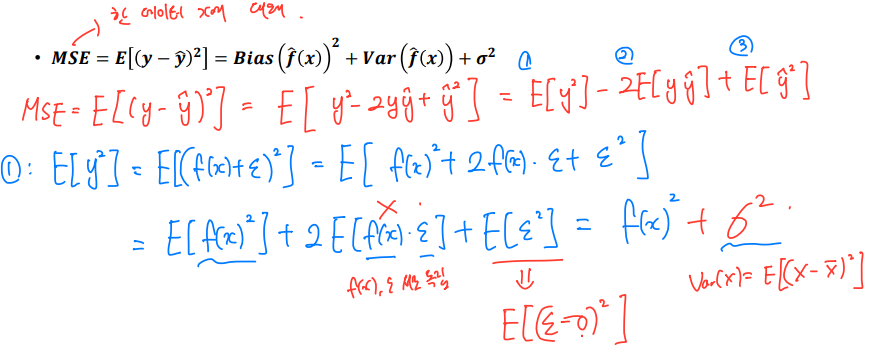 한 데이터 x에 대해.
• MSE = E[(y − ŷ)²] = Bias(f̂(x))² + Var(f̂(x)) + σ² ① ② ③
MSE = E[(y-ŷ)²] = E[y²-2yŷ+ŷ²] = E[y²] - 2E[yŷ] + E[ŷ²]
①: E[y²] = E[(f(x)+ε)²] = E[f(x)²+2f(x)·ε+ε²]
= E[f(x)²] + 2E[f(x)·ε] + E[ε²] = f(x)² + σ².
f(x), ε 서로 독립
⇓
Var(x) = E[(x-x̄)²]
E[(ε-0)²]